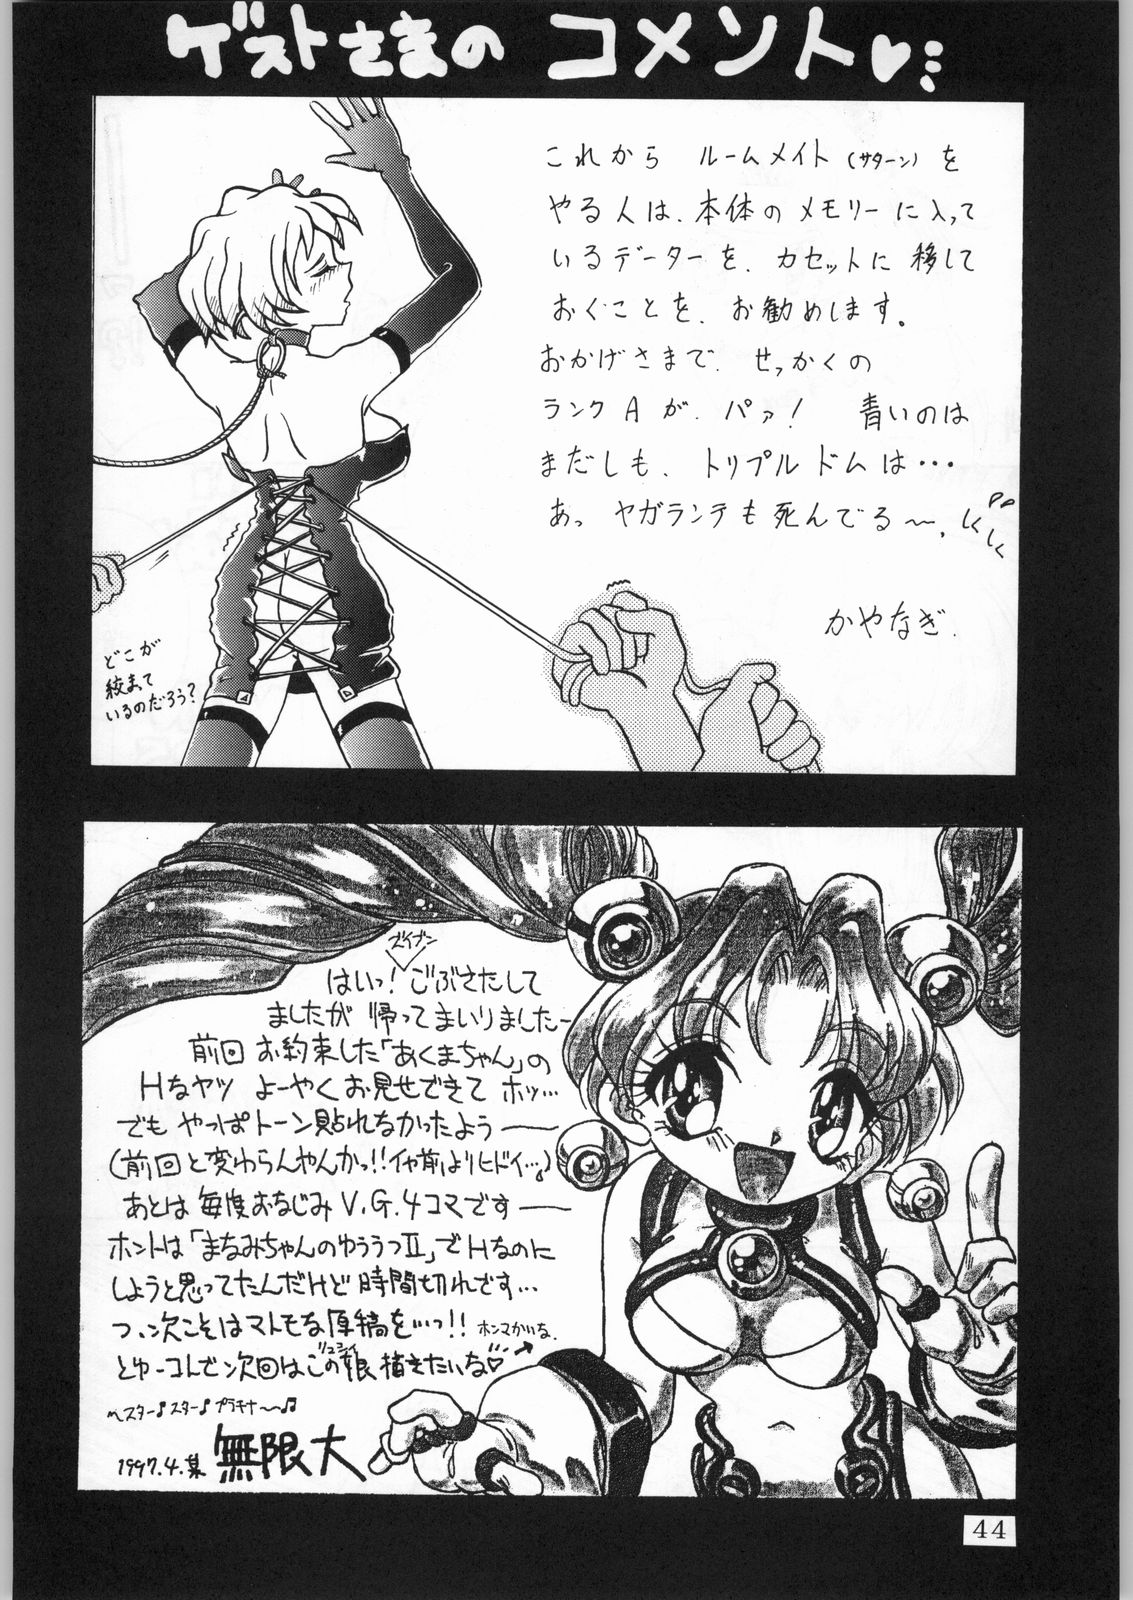 ゲストさまの コメント♡
これから ルームメイト(サターン)を
やる人は、本体のメモリーに入って
いるデーターを、カセットに移して
おくことを、お勧めします。
おかげさまで、せっかくの
ランクAが、パァ! 青いのは
まだしも、トリプルドムは・・・
あっ ヤガランデも死んでる〜、しくしく
かやなぎ.
どこが
絞まって
いるのだろう?
ズイブン
はいっ!ごぶさたして
ましたが 帰ってまいりました〜
前回 お約束した「あくまちゃん」の
Hなヤツ よーやくお見せできて ホッ…
でも やっぱトーン貼れなかったよう──
(前回と変わらんやんかっ!!イヤ前よりヒドイ…)
あとは 毎度おなじみ V.G.4コマです──
ホントは「まなみちゃんのゆううつII」でHなのに
しようと思ってたんだけど時間切れです…
つ、次こそはマトモな原稿を…っ!! ホンマかいな.
とゆーコトで次回はこの娘描きたいな♡→
スター♪スター♪プラチナ〜♫
1997.4.某 無限大
44